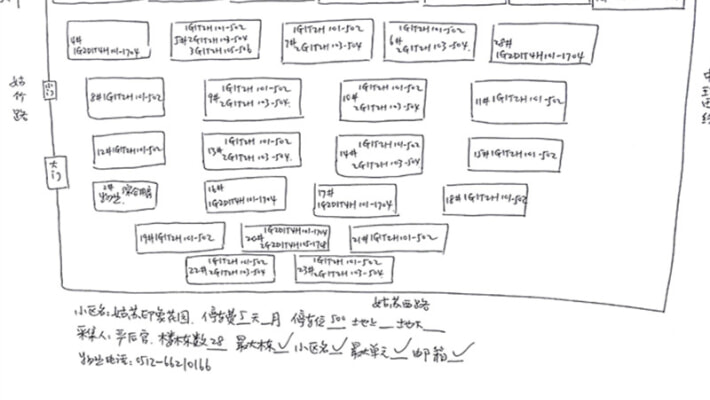 4#
1G2D1T4H 101-1704
1G1T2H 101-502
5#2G1T2H 103-504
3G1T2H 105-506
1G1T2H 101-502
7#2G1T2H 103-504
1G1T2H 101-502
6#2G1T2H 103-504
28#
1G2D1T4H 101-1704
小门
8#1G1T2H 101-502
1G1T2H 101-502
9#2G1T2H 103-504
1G1T2H 101-502
10#2G1T2H 103-504
11#1G1T2H 101-502
12#1G1T2H 101-502
1G1T2H 101-502
13#2G1T2H 103-504
1G1T2H 101-502
14#2G1T2H 103-504
15#1G1T2H 101-502
大门
物业
16#
1G2D1T4H 101-1704
17#
1G2D1T4H 101-1704
18#1G1T2H 101-502
19#1G1T2H 101-502
1G2D1T4H 101-1704
20#2G2D1T4H 105-1708
21#1G1T2H 101-502
1G1T2H 101-502
22#2G1T2H 103-504
1G1T2H 101-502
23#2G1T2H 103-504
姑苏西路
小区名:姑苏印象花园. 停车费5天_月 停车位500 地上_地下_
采集人: 楼栋数28 最大栋✓小区名✓最大单元✓邮箱✓
物业电话:0512-66210166